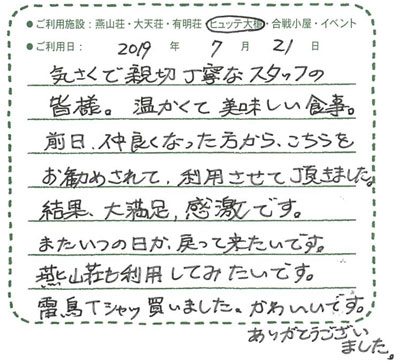 ●ご利用施設：燕山荘・大天荘・有明荘・ヒュッテ大槍・合戦小屋・イベント
●ご利用日： 2019 年 7 月 21 日
気さくで親切丁寧なスタッフの
皆様。温かくて美味しい食事。
前日、仲良くなった方から、こちらを
お勧めされて、利用させて頂きました。
結果、大満足、感激です。
またいつの日か、戻って来たいです。
燕山荘も利用してみたいです。
雷鳥Tシャツ買いました。かわいいです。
ありがとうござい
ました。